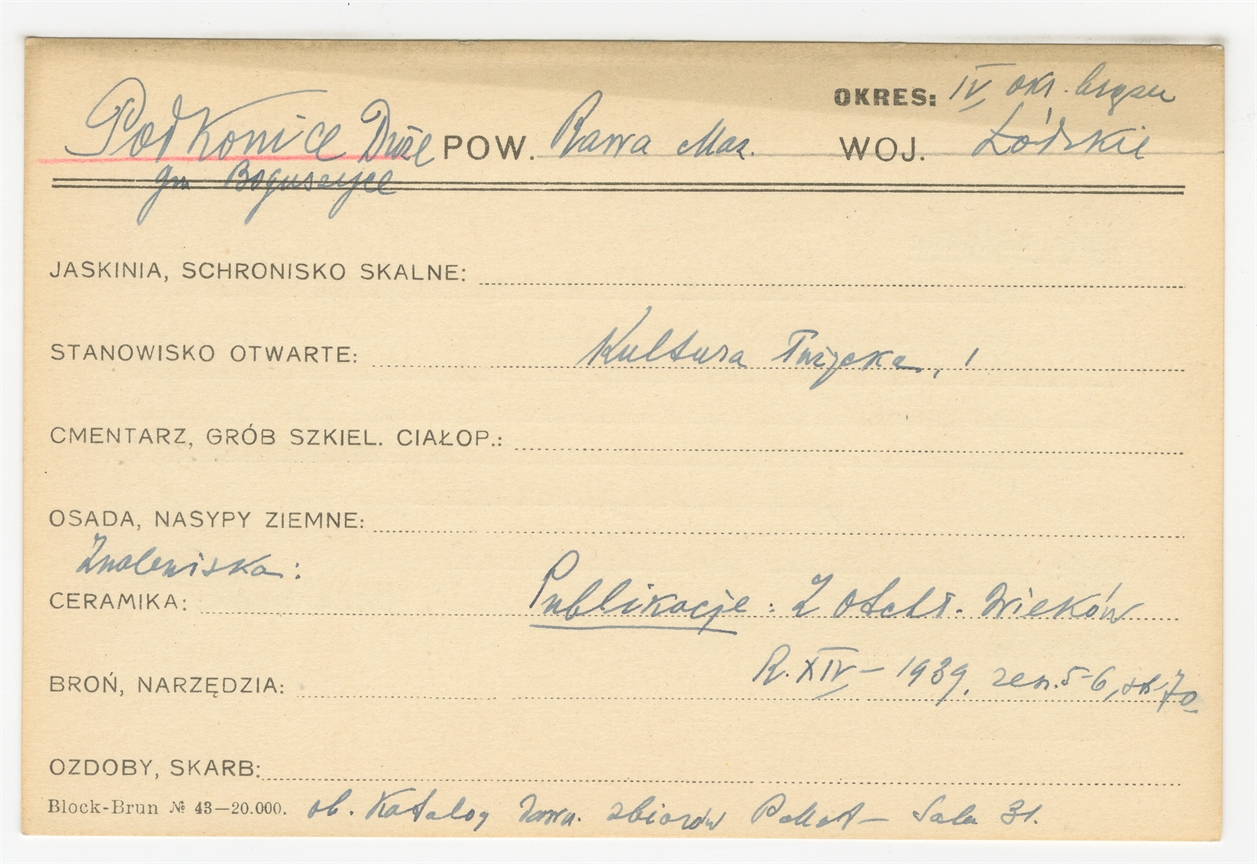 OKRES: IV okr. brązu
Podkonice Duże POW. Rawa Maz. WOJ. Łódzkie
gm Boguszyce
JASKINIA, SCHRONISKO SKALNE:
STANOWISKO OTWARTE: Kultura Łużycka, 1
CMENTARZ, GRÓB SZKIEL. CIAŁOP.:
OSADA, NASYPY ZIEMNE:
Znaleziska:
CERAMIKA: Publikacje: Z otchł. Wieków
BROŃ, NARZĘDZIA: R. XIV – 1939, zesz. 5-6, str 70
OZDOBY, SKARB:
Block-Brun № 43–20.000. ob. Katalog zbiorów – Sala 31.